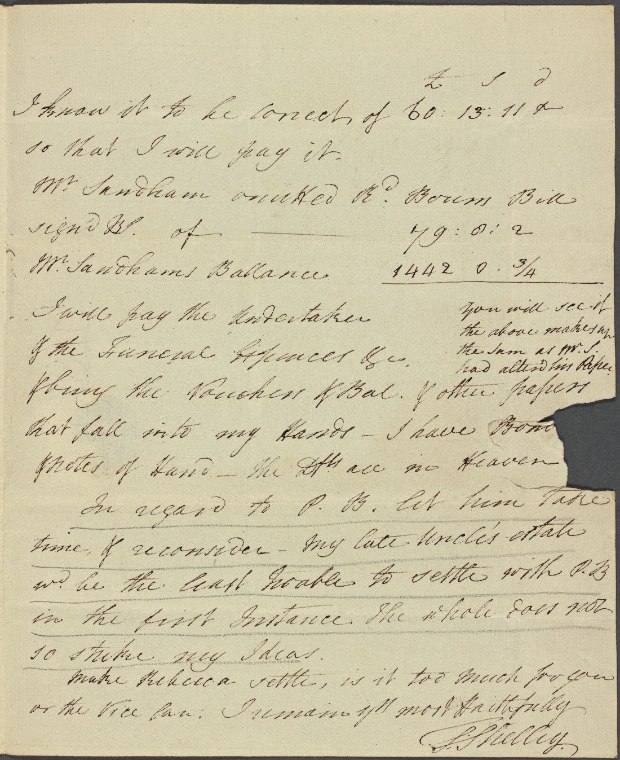 £ s d
I know it to be correct, of 60: 13: 11
so that I will pay it.
Mr Sandham omitted Rd. Bourns Bill
signd BS. of — 79: 0: 2
Mr. Sandhams Ballance 1442 0. 3/4
I will pay the Undertaker
& the Funeral Expences &c.
you will see it
the above makes up
the sum as Mr. S.
had alterd his Paper
& bring the Vouchers & Bal. & other papers
that fall into my Hands – I have Bond
& notes of Hand – the are in Heaven
In regard to P. B. let him take
time, & reconsider – My late Uncle's estate
wd be the least trouble to settle with P.B
in the first Instance. The whole does not
so strike my Ideas.
Make Rebecca settle, is it too much for you
or the Vice Can: I remain yrs most Faithfully
Shelley.